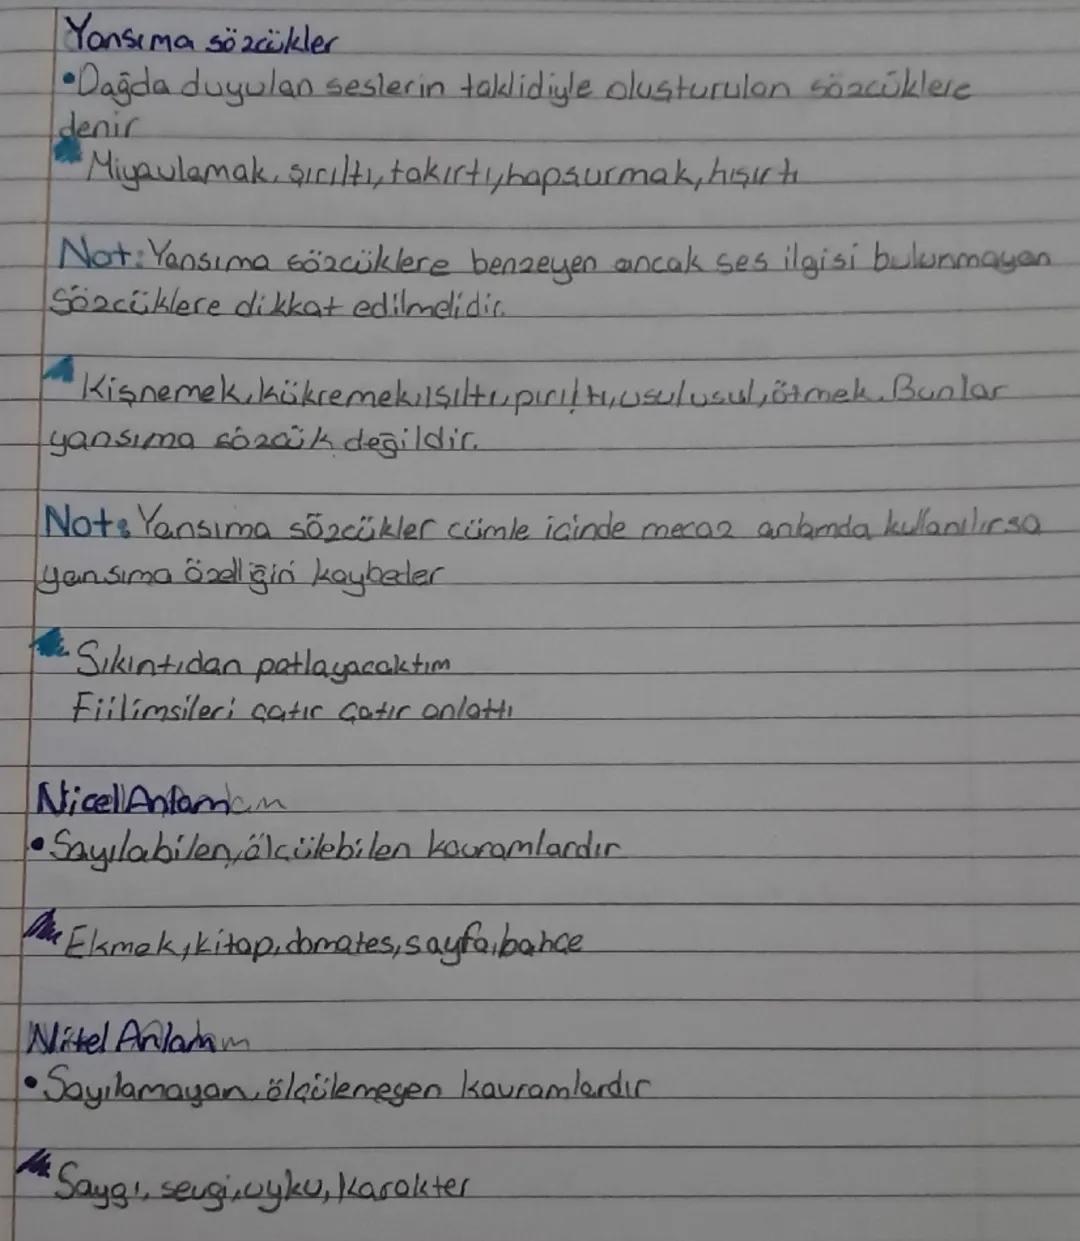 Yansıma sözcükler
•Dağda duyulan seslerin taklidiyle oluşturulan sözcüklere
denir
Miyavlamak, şırıltı, takırtı, hapşurmak, hışırtı
Not: Yansıma sözcüklere benzeyen ancak ses ilgisi bulunmayan
sözcüklere dikkat edilmelidir.
Kişnemek, kükremek, ışıltı, pırıltı, usulusul, ötmek. Bunlar
yansıma sözcük değildir.
Not: Yansıma sözcükler cümle içinde mecaz anlamda kullanılırsa
yansıma özelliğini kaybeder
Sıkıntıdan patlayacaktım
Fiilimsileri çatır çatır anlattı
Nicel Anlam
• Sayılabilen, ölçülebilen kavramlardır
Ekmek, kitap, domates, sayfa, bahçe
Nitel Anlam
• Sayılamayan, ölçülemeyen kavramlardır
Saygı, sevgi, uyku, karakter